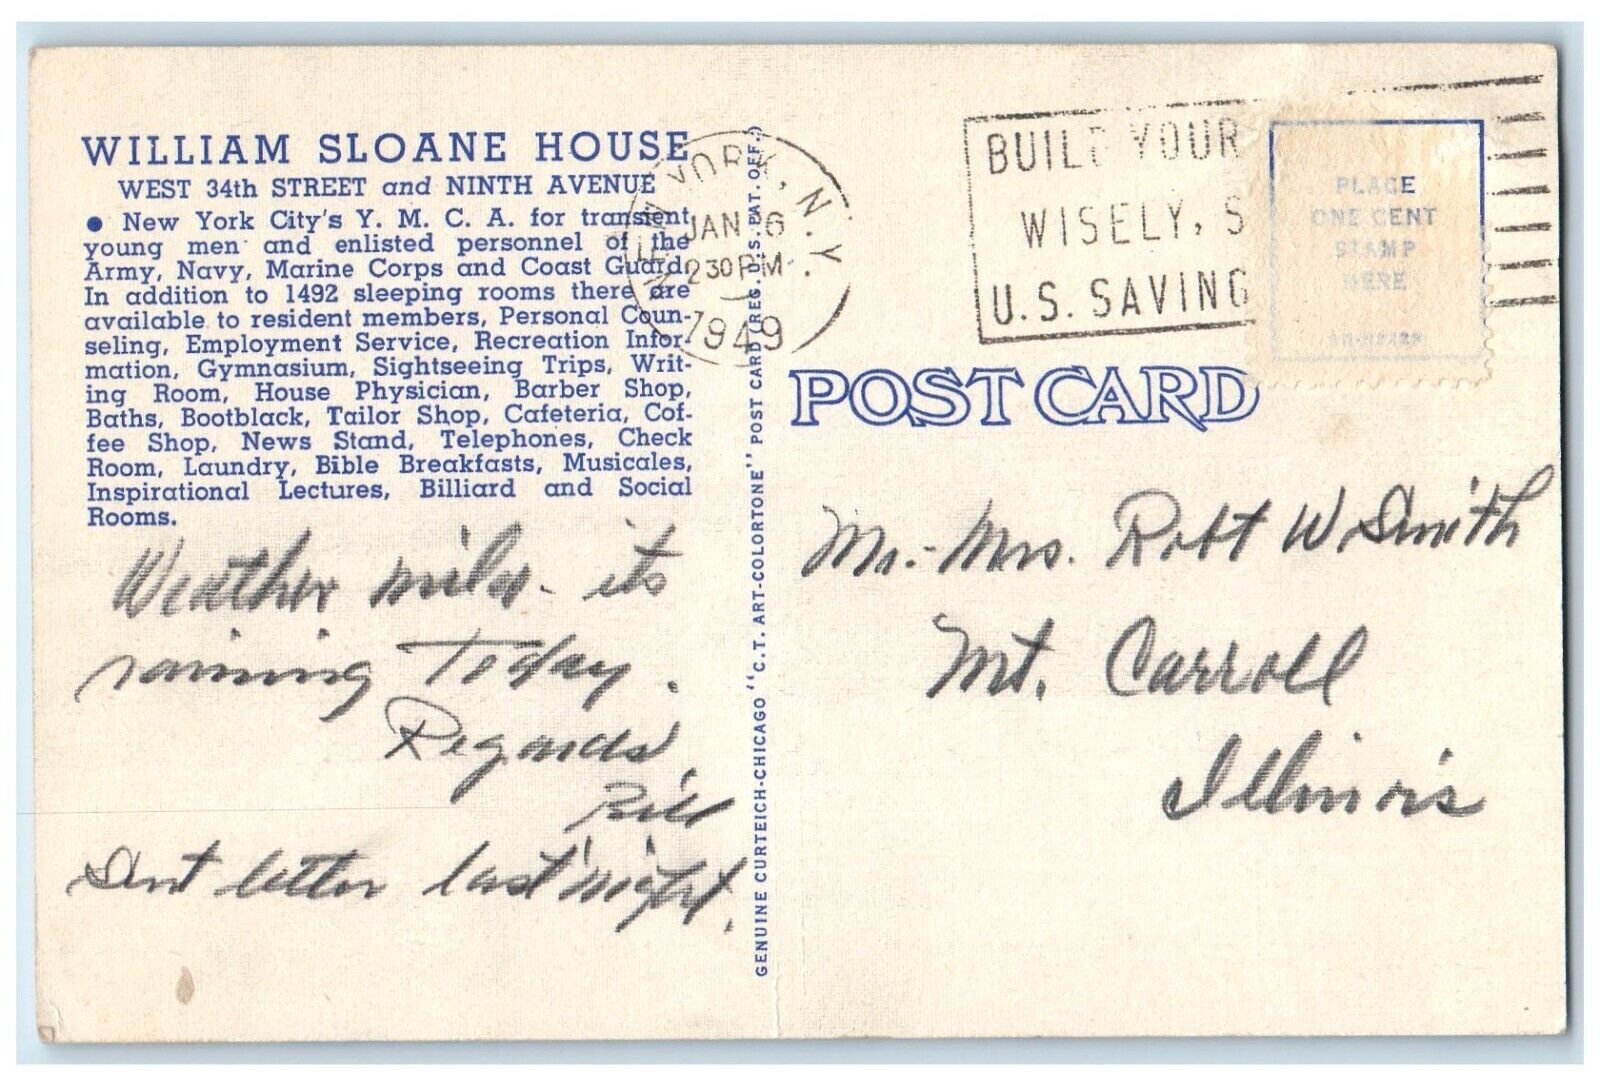 WILLIAM SLOANE HOUSE
WEST 34th STREET and NINTH AVENUE
● New York City's Y. M. C. A. for transient
young men and enlisted personnel of the
Army, Navy, Marine Corps and Coast Guard.
In addition to 1492 sleeping rooms there are
available to resident members, Personal Coun-
seling, Employment Service, Recreation Infor-
mation, Gymnasium, Sightseeing Trips, Writ-
ing Room, House Physician, Barber Shop,
Baths, Bootblack, Tailor Shop, Cafeteria, Cof-
fee Shop, News Stand, Telephones, Check
Room, Laundry, Bible Breakfasts, Musicales,
Inspirational Lectures, Billiard and Social
Rooms.
Weather mild - its
raining Today.
Regards
Bill
Sent letter last night.
NEW YORK, N.Y.
JAN 6
230 PM
1949
GENUINE CURTEICH-CHICAGO "C.T. ART-COLORTONE" POST CARD (REG. U.S. PAT. OFF.)
BUILD YOUR
WISELY, S
U.S. SAVING
PLACE
ONE CENT
STAMP
HERE
POST CARD
Mr. - Mrs. Robt W. Smith
Mt. Carroll
Illinois